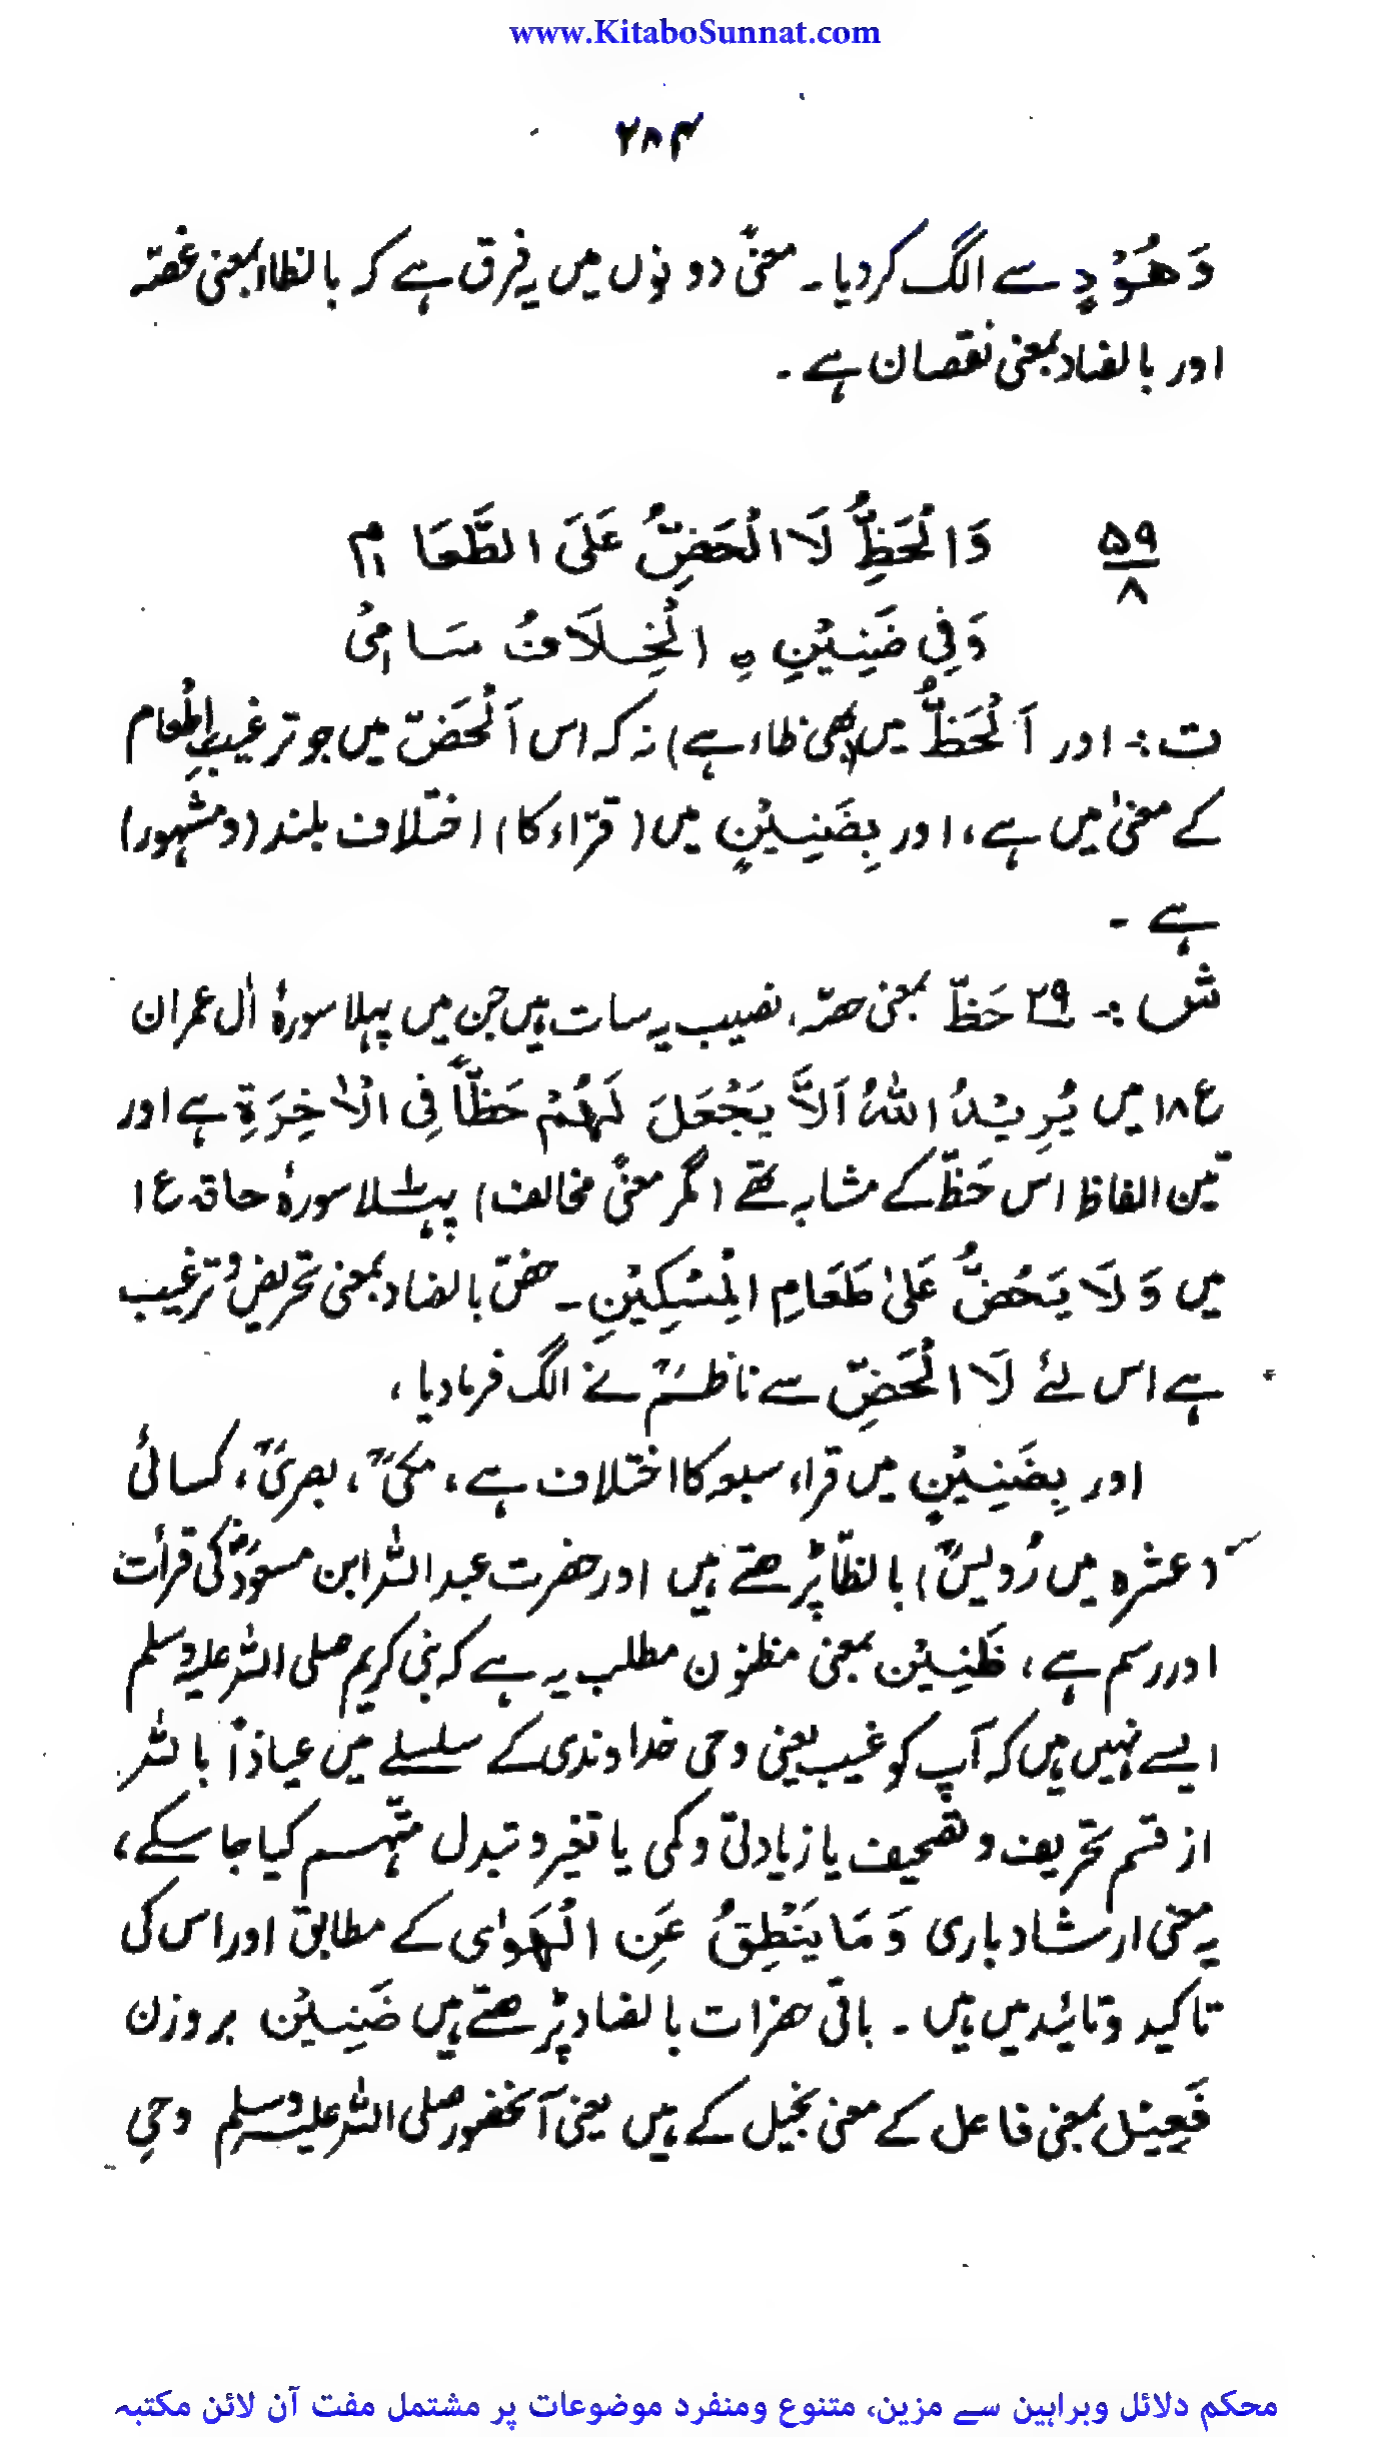 www.KitaboSunnat.com
۲۸۴
وَهُوْدٍ سے الگ کردیا۔ معنیً دونوں میں یہ فرق ہے کہ بالظا بمعنی غصّہ
اور بالضاد بمعنی نقصان ہے ۔
۵۹
۸
وَالْحَظِّ لَا الْحَضِّ عَلَی الطَّعَامِ
وَفِي ضَنِيْنٍ ِ الْخِلَافُ سَامِيْ
ت :۔ اور اَلْحَظُّ میں (بھی ظاء ہے) نہ کہ اس اَلْحَضّ میں جو ترغیبِ اِطْعام
کے معنیٰ میں ہے، اور بِضَنِيْنٍ میں (قرّاء کا) اختلاف بلند (ومشہور)
ہے ۔
ش :۔ ۲۹ حَظّ بمعنی حصّہ، نصیب یہ سات ہیں جن میں پہلا سورۂ اٰل عمران
ع۱۸ میں يُرِيْدُ اللهُ اَلاَّ يَجْعَلَ لَهُمْ حَظّاً فِي الْاٰخِرَةِ ہے اور
تین الفاظ اس حَظّ کے مشابہ تھے (مگر معنیً مخالف) پہلا سورۂ حاقہ ع۱
میں وَلَا يَحُضُّ عَلٰی طَعَامِ الْمِسْكِيْنِ ۔ حضّ بالضاد بمعنی تحریض و ترغیب
ہے اس لئے لَا الْحَضِّ سے ناظمؒ نے الگ فرمادیا ،
اور بِضَنِيْنٍ میں قراء سبعہ کا اختلاف ہے، مکیؒ، بصریؒ، کسائی
(عشرہ میں رُویسؒ) بالظّا پڑھتے ہیں اور حضرت عبداللہ ابن مسعودؓ کی قرأت
اور رسم ہے، ظَنِيْن بمعنی مظنون مطلب یہ ہے کہ نبی کریم صلی اللہ علیہ وسلم
ایسے نہیں ہیں کہ آپ کو غیب یعنی وحی خداوندی کے سلسلے میں عیاذاً باللہ
از قسم تحریف و تصحیف یا زیادتی وکمی یا تغیر و تبدل متّہم کیا جاسکے،
یہ معنی ارشاد باری وَمَا يَنْطِقُ عَنِ الْهَوٰی کے مطابق اور اس کی
تاکید وتائید میں ہیں ۔ باقی حضرات بالضاد پڑھتے ہیں ضَنِيْن بروزن
فَعِيْل بمعنی فاعل کے معنی بخیل کے ہیں یعنی آنحضور صلی اللہ علیہ وسلم وحیِ
محکم دلائل وبراہین سے مزین، متنوع ومنفرد موضوعات پر مشتمل مفت آن لائن مکتبہ